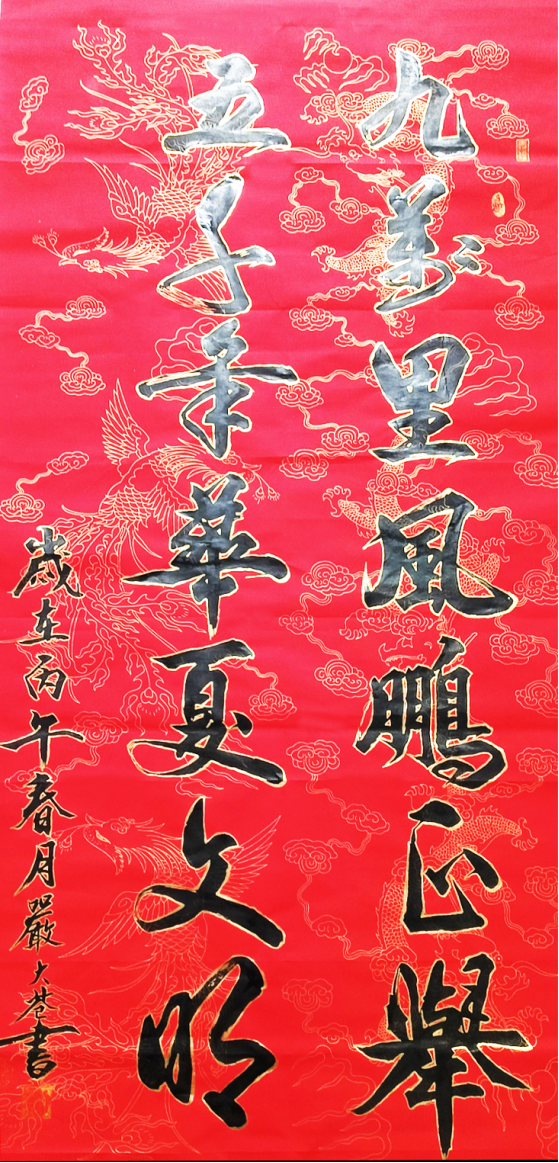 九萬里風鵬正舉
五千年華夏文明
歲在丙午春月嚴大苍書